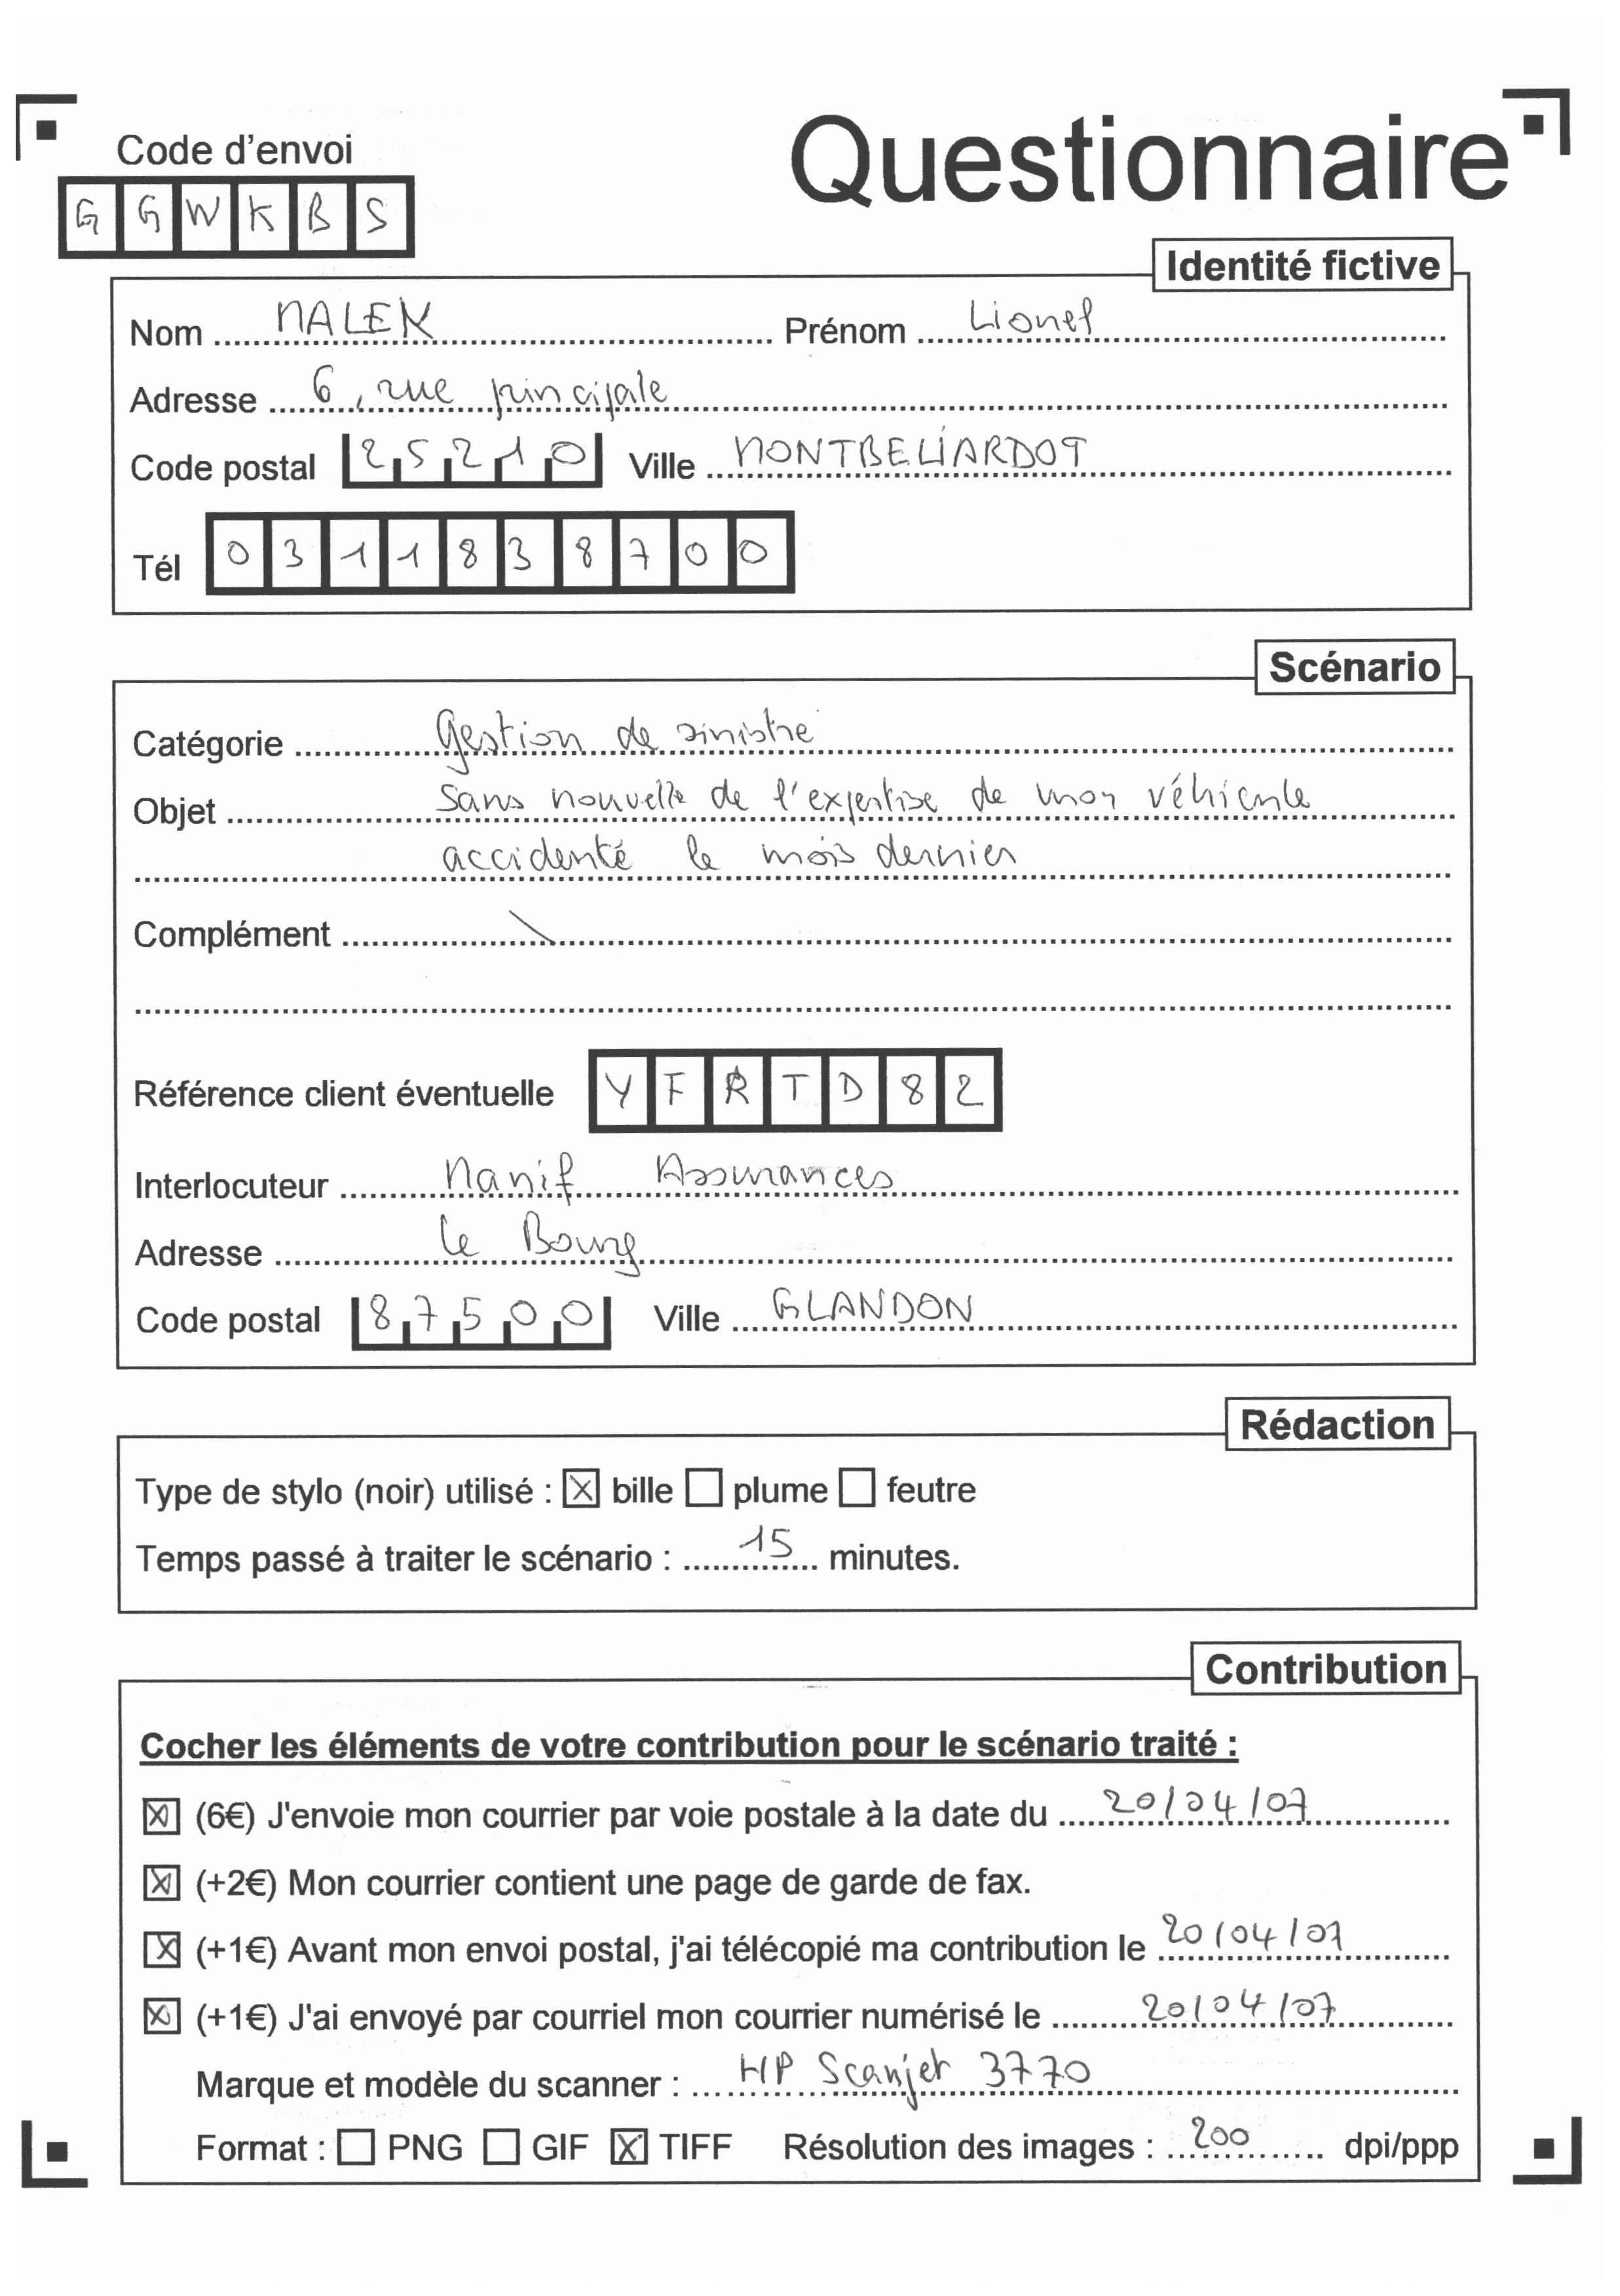 Questionnaire
Code d'envoi
GGWKBS
Identité fictive
Nom MALEK Prénom Lionel
Adresse 6, rue principale
Code postal 25210 Ville MONTBELIARDOT
Tél 0311838700
Scénario
Catégorie Gestion de sinistre
Objet Sans nouvelle de l'expertise de mon véhicule
accidenté le mois dernier
Complément
Référence client éventuelle YFRTD82
Interlocuteur Manif Assurances
Adresse Le Bourg
Code postal 87500 Ville GLANDON
Rédaction
Type de stylo (noir) utilisé : ☒ bille ☐ plume ☐ feutre
Temps passé à traiter le scénario : 15 minutes.
Contribution
Cocher les éléments de votre contribution pour le scénario traité :
☒ (6€) J'envoie mon courrier par voie postale à la date du 20/04/07
☒ (+2€) Mon courrier contient une page de garde de fax.
☒ (+1€) Avant mon envoi postal, j'ai télécopié ma contribution le 20/04/07
☒ (+1€) J'ai envoyé par courriel mon courrier numérisé le 20/04/07
Marque et modèle du scanner : HP Scanjet 3770
Format : ☐ PNG ☐ GIF ☒ TIFF Résolution des images : 200 dpi/ppp